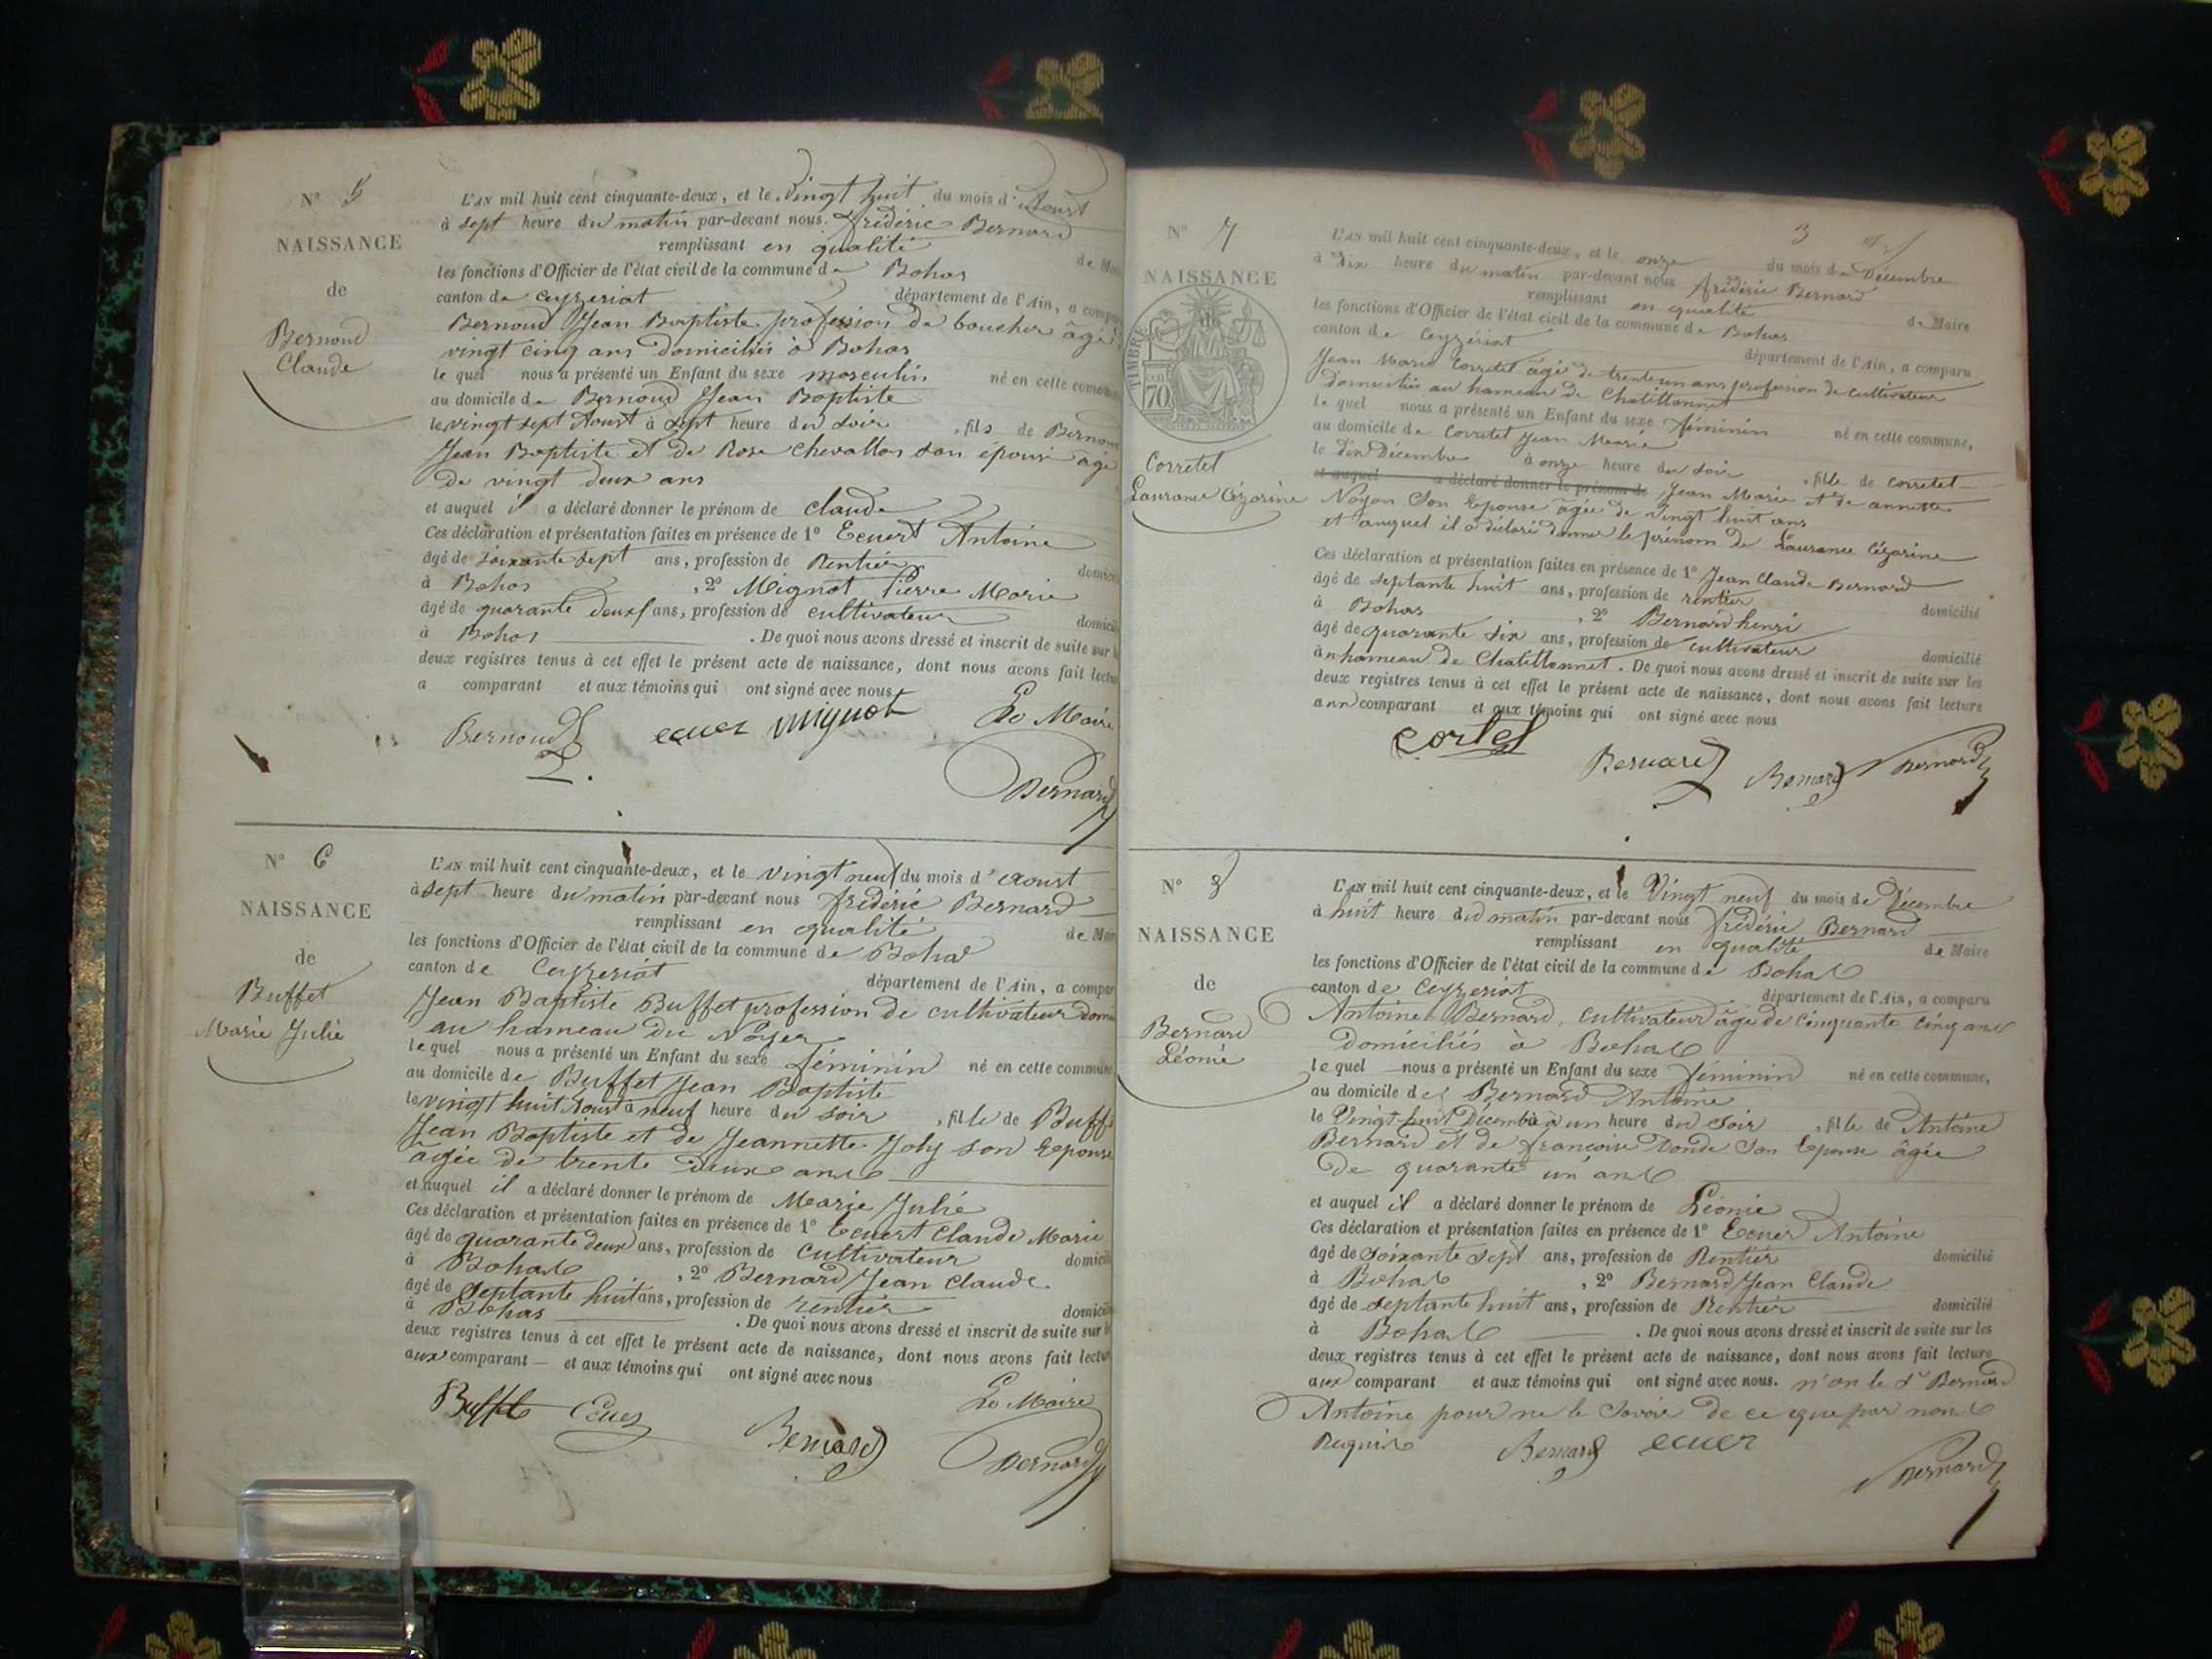 N° 5
NAISSANCE
de
Bernoud
Claude
L'AN mil huit cent cinquante-deux, et le Vingt huit du mois d'Aoust
à sept heure du matin par-devant nous frédéric Bernard
remplissant en qualité de Mai
les fonctions d'Officier de l'état civil de la commune de Bohas
canton de Ceyzeriat département de l'Ain, a compar
Bernoud Jean Baptiste profession de boucher âgé
vingt cinq ans Domiciliés à Bohas
le quel nous a présenté un Enfant du sexe masculin né en cette commun
au domicile de Bernoud Jean Baptiste
le vingt sept Aoust à sept heure du soir , fils de Bernoud
Jean Baptiste et de Rose Chevallon son épouse âgé
De vingt deux ans
et auquel il a déclaré donner le prénom de Claude
Ces déclaration et présentation faites en présence de 1° Ecuert Antoine
âgé de soixante sept ans, profession de Rentier domicili
à Bohas , 2° Mignot Pierre Marie
âgé de quarante deux ans, profession de cultivateur domicili
à Bohas . De quoi nous avons dressé et inscrit de suite sur l
deux registres tenus à cet effet le présent acte de naissance, dont nous avons fait lectu
a comparant et aux témoins qui ont signé avec nous
Bernoud ecuer mignot Le Maire
Bernard
N° 6
NAISSANCE
de
Buffet
Marie Julie
L'AN mil huit cent cinquante-deux, et le vingt neuf du mois d'Aoust
à sept heure du matin par-devant nous frédéric Bernard
remplissant en qualité de Mai
les fonctions d'Officier de l'état civil de la commune de Bohas
canton de Ceyzeriat département de l'Ain, a compar
Jean Baptiste Buffet profession de cultivateur domi
au hameau du Noyer
le quel nous a présenté un Enfant du sexe féminin né en cette commune
au domicile de Buffet Jean Baptiste
le vingt huit Aoust à neuf heure du soir , fille de Buffe
Jean Baptiste et de Jeannette Joly son Epouse
âgée de trente deux ans
et auquel il a déclaré donner le prénom de Marie Julie
Ces déclaration et présentation faites en présence de 1° Ecuert Claude Marie
âgé de quarante deux ans, profession de Cultivateur domicili
à Bohas , 2° Bernard Jean Claude
âgé de Septante huit ans, profession de rentier domicili
à Bohas . De quoi nous avons dressé et inscrit de suite sur l
deux registres tenus à cet effet le présent acte de naissance, dont nous avons fait lectur
aux comparant et aux témoins qui ont signé avec nous
Buffet Ecuer Bernard Le Maire
Bernard
3
N° 7
NAISSANCE
de
TIMBRE
70
Corretel
Laurance Cézarine
L'AN mil huit cent cinquante-deux, et le onze du mois de Décembre
à dix heure du matin par-devant nous frédéric Bernard
remplissant en qualité de Maire
les fonctions d'Officier de l'état civil de la commune de Bohas
canton de Ceyzériat département de l'Ain, a comparu
Jean Marie Corretel âgé de trente un ans profession de cultivateur
Domiciliés au hameau de Chatillonnet
le quel nous a présenté un Enfant du sexe féminin né en cette commune,
au domicile de Corretel Jean Marie
le dix Décembre à onze heure du soir , fille de Corretel
et auquel a déclaré donner le prénom de Jean Marie et de annette
Noyon Son Epouse âgée de Vingt huit ans
et auquel il a déclaré donner le prénom de Laurance Cézarine
Ces déclaration et présentation faites en présence de 1° Jean Claude Bernard
âgé de septante huit ans, profession de rentier domicilié
à Bohas , 2° Bernard henri
âgé de quarante six ans, profession de cultivateur domicilié
à n hameau de Chatillonnet . De quoi nous avons dressé et inscrit de suite sur les
deux registres tenus à cet effet le présent acte de naissance, dont nous avons fait lecture
aux comparant et aux témoins qui ont signé avec nous
cortel Bernard Bernard Bernard
N° 8
NAISSANCE
de
Bernard
Léonie
L'AN mil huit cent cinquante-deux, et le Vingt neuf du mois de Décembre
à huit heure du matin par-devant nous frédéric Bernard
remplissant en qualité de Maire
les fonctions d'Officier de l'état civil de la commune de Bohas
canton de Ceyzeriat département de l'Ain, a comparu
Antoine Bernard, cultivateur âgé de cinquante cinq ans
Domiciliés à Bohas
le quel nous a présenté un Enfant du sexe féminin né en cette commune,
au domicile de Bernard Antoine
le Vingt-huit Décembre à un heure du soir , fille de Antoine
Bernard et de françoise Donde Son Epouse âgée
De quarante un ans
et auquel il a déclaré donner le prénom de Léonie
Ces déclaration et présentation faites en présence de 1° Ecuer Antoine
âgé de Soixante sept ans, profession de Rentier domicilié
à Bohas , 2° Bernard Jean Claude
âgé de septante huit ans, profession de Rentier domicilié
à Bohas . De quoi nous avons dressé et inscrit de suite sur les
deux registres tenus à cet effet le présent acte de naissance, dont nous avons fait lecture
aux comparant et aux témoins qui ont signé avec nous. n'on le Sr Bernard
Antoine pour ne le Savoir de ce que par nous
Requis Bernard ecuer
Bernard